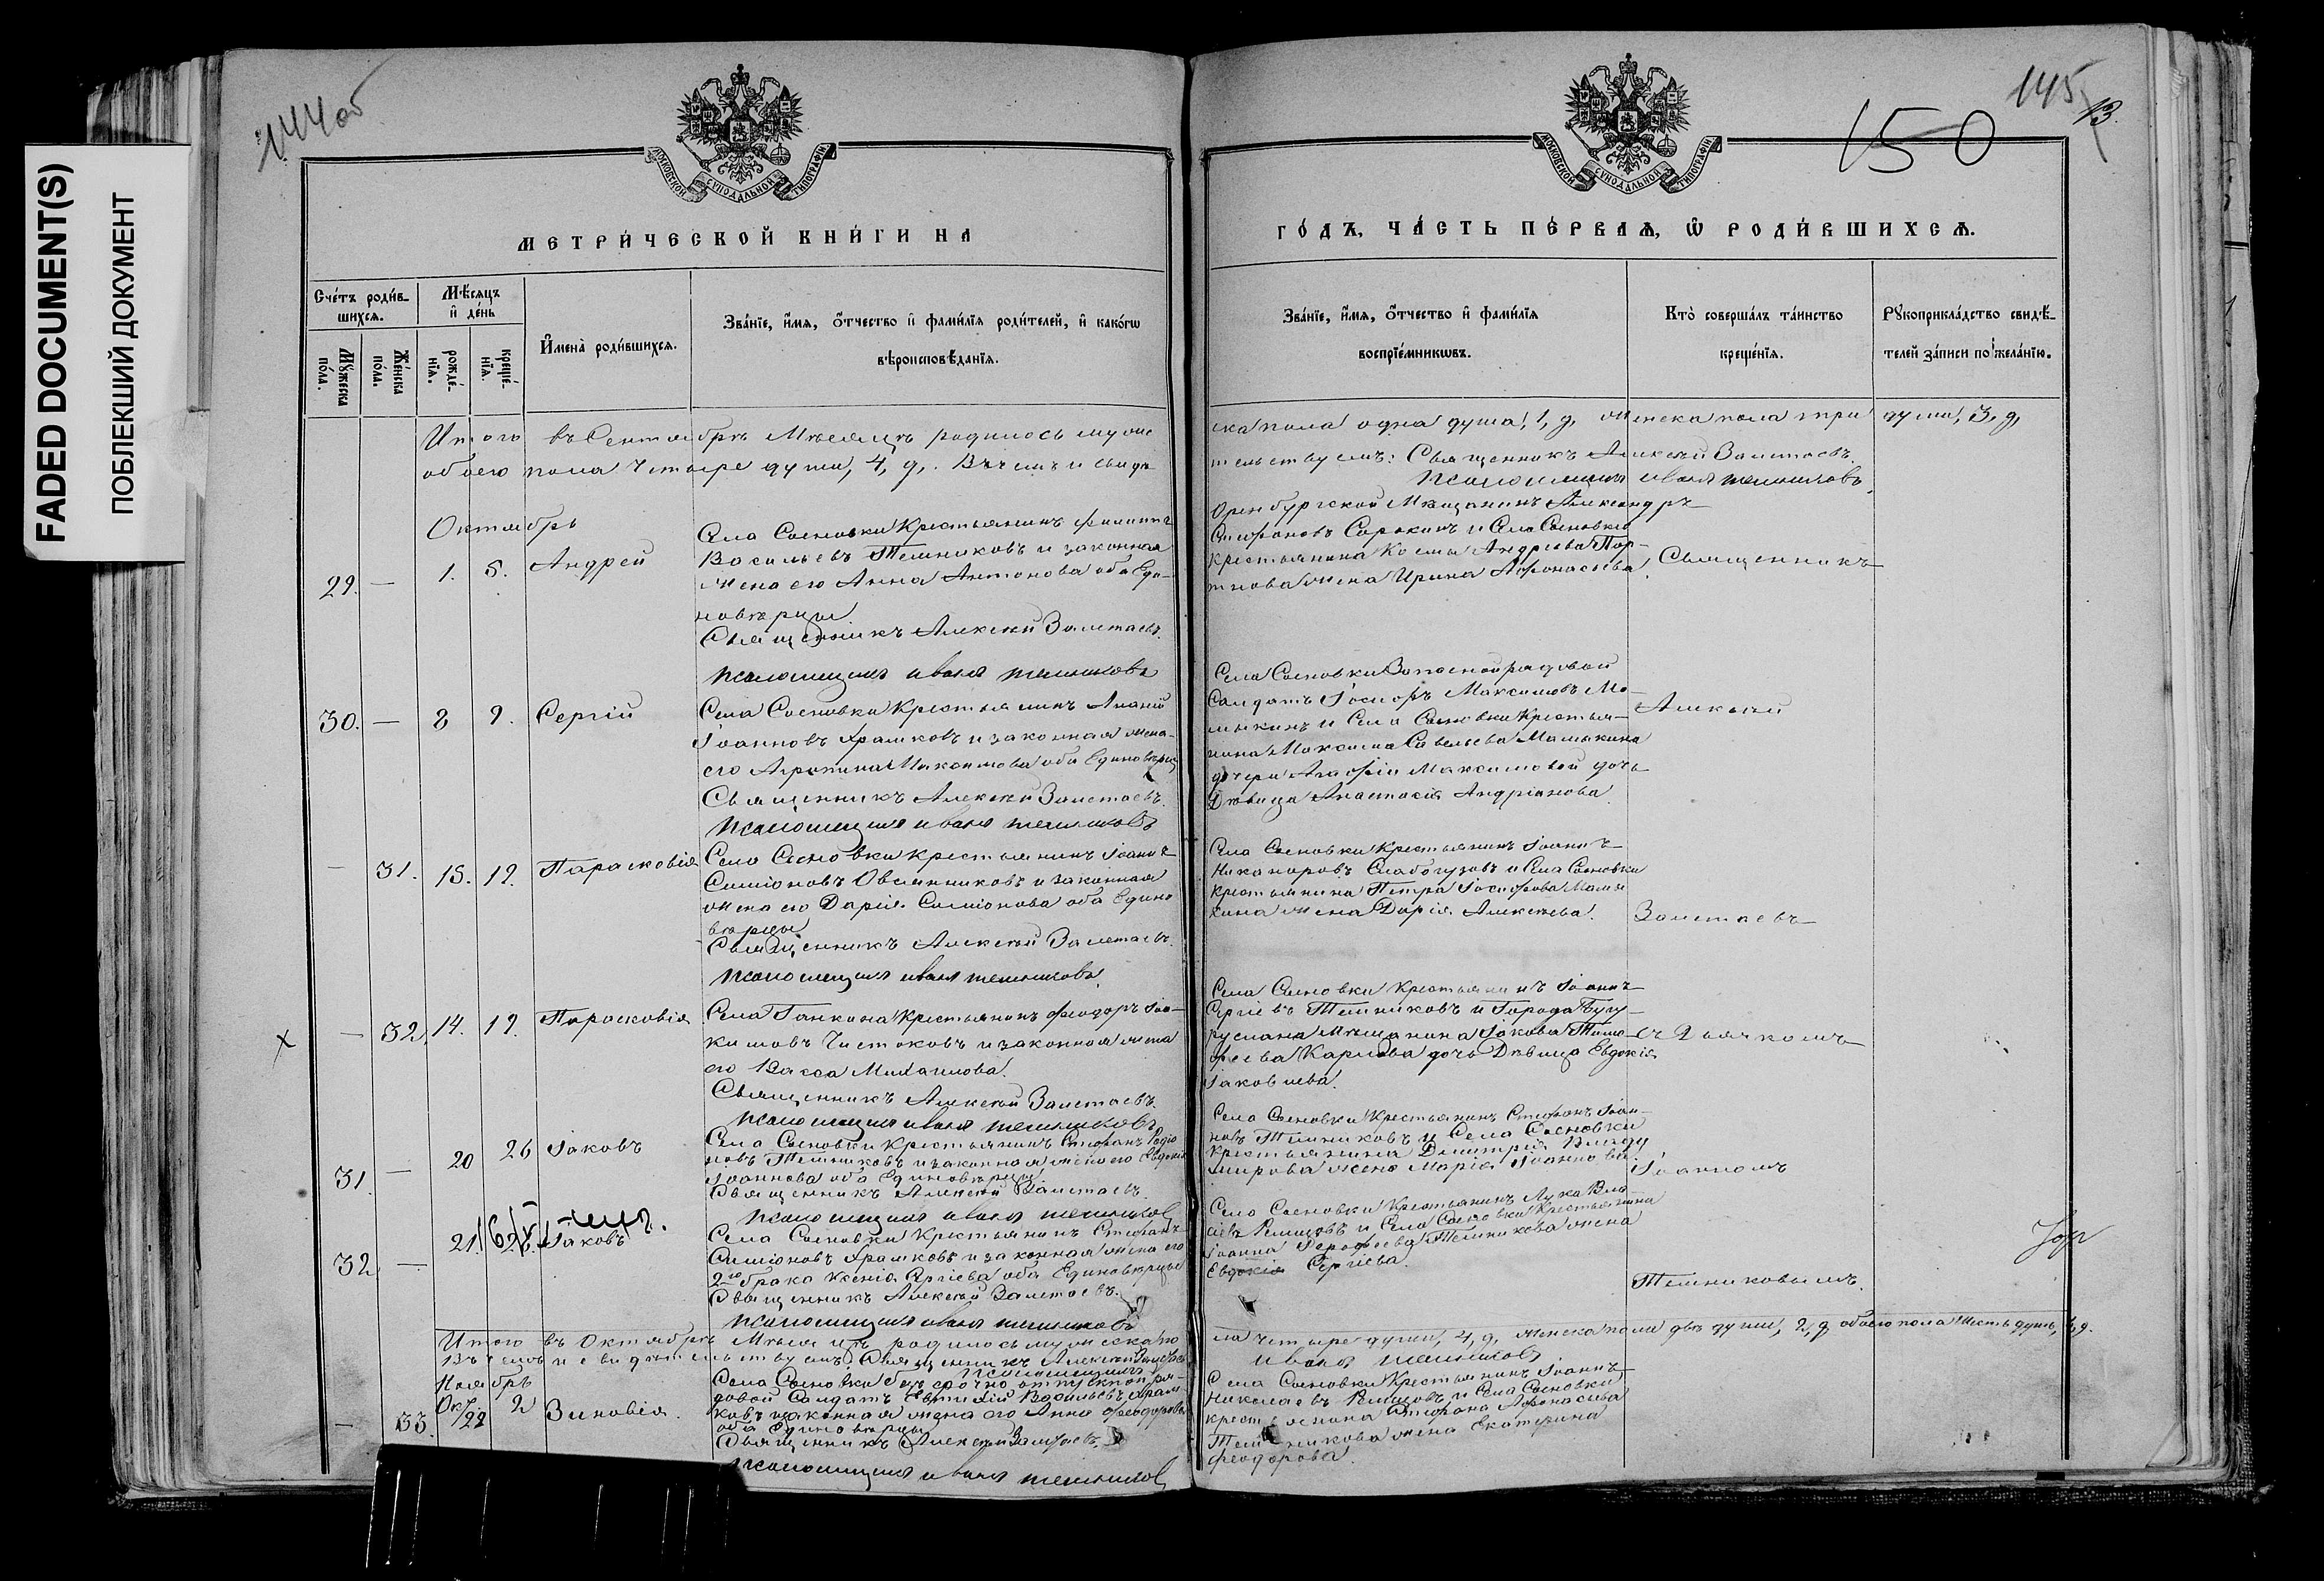 FADED DOCUMENT(S)
ПОБЛЕКШИЙ ДОКУМЕНТ
144об
МОСКОВСКОЙ СУНОДАЛЬНОЙ ТИПОГРАФІИ
МЕТРИ́ЧЕСКОЙ КНИ́ГИ НА
Сче́тъ роди́в-
шихся.
Мѣ́сяцъ
и҆ де́нь
Мꙋ́жеска
по́ла.
Же́нска
по́ла.
рожде́-
нїѧ.
креще́-
нїѧ.
И҆мена̀ роди́вшихсѧ.
Зва́нїе, и҆́мѧ, ѻ҆́тчество и҆ фами́лїѧ роди́телей, и҆ како́гѡ
вѣроисповѣ́данїѧ.
Итого въ Сентябрѣ Мѣсяцѣ родилось муже
обоего пола четыре души, 4, д,. Въ чемъ и свидѣ
Октябрь
29. — 1. 5. Андрей
Села Сосновки Крестьянинъ Филиппъ
Васильевъ Темниковъ и законная
жена его Анна Антонова оба Еди-
новѣрцы
Священникъ Алексѣй Залетаевъ.
Псаломщикъ Иванъ Темниковъ
30. — 8 9. Сергій
Села Сосновки Крестьянинъ Ананій
Іоанновъ Храмковъ и законная жена
его Агрипина Максимова оба Единовѣрцы
Священникъ Алексѣй Залетаевъ.
Псаломщикъ Иванъ Темниковъ
— 31. 15. 19. Парасковія
Село Сосновки Крестьянинъ Іоаннъ
Симіоновъ Овсянниковъ и законная
жена его Дарія Симіонова оба Едино
вѣрцы
Священникъ Алексѣй Залетаевъ.
Псаломщикъ Иванъ Темниковъ.
х — 32. 14. 19. Парасковія
Села Ганкина Крестьянинъ Феодоръ Іоа-
кимовъ Чистяковъ и законная жена
его Васса Михаилова.
Священникъ Алексѣй Залетаевъ.
Псаломщикъ Иванъ Темниковъ
31. — 20 26 Іаковъ
Села Сосновки Крестьянинъ Стефанъ Родіо
новъ Темниковъ и законная жена его Евдокія
Іоаннова оба Единовѣрцы
Священникъ Алексѣй Залетаевъ.
Псаломщикъ Иванъ Темниковъ
32 — 21. Іаковъ
Села Сосновки Крестьянинъ Стефанъ
Симіоновъ Храмковъ и законная жена его
2го брака Ксенія Сергіева оба Единовѣрцы
Священникъ Алексѣй Залетаевъ.
Псаломщикъ Иванъ Темниковъ
Итого въ Октябрѣ Мѣсяцѣ родилось мужеска по
Въ чемъ и свидѣтельствуемъ: Священникъ Алексѣй Залетаевъ
Псаломщикъ
Ноябрь
— 33. Ок/22 2 Зиновія.
Села Сосновки безсрочно отпускной ря-
довой Солдатъ Евтихій Васильевъ Храм
ковъ и законная жена его Анна Феодорова
оба Единовѣрцы
Священникъ Алексѣй Залетаевъ.
Псаломщикъ Иванъ Темниковъ
145
13.
150
МОСКОВСКОЙ СУНОДАЛЬНОЙ ТИПОГРАФІИ
ГО́ДЪ, ЧА́СТЬ ПЕ́РВАѦ, Ѡ҆ РОДИ́ВШИХСѦ.
Зва́нїе, и҆́мѧ, ѻ҆́тчество и҆ фами́лїѧ
воспрїе́мникѡвъ.
Кто̀ соверша́лъ та́инство
креще́нїѧ.
Рꙋкоприкла́дство свидѣ́-
телей за́писи по жела́нїю.
ска пола одна душа, 1, д, женска пола три души, 3, д,
тельствуемъ: Священникъ Алексѣй Залетаевъ.
Псаломщикъ Иванъ Темниковъ.
Оренбургской Мѣщанинъ Александръ
Стефановъ Сорокинъ и Села Сосновки
крестьянина Космы Андреева Пор-
тнова жена Ирина Афонасьева
Священникъ
Села Сосновки Запасной рядовой
Солдатъ Іосифъ Максимовъ Ма-
лыкинъ и Села Сосновки Крестья-
нина Максима Савельева Малыкина
дочери Агафіи Максимовой дочь
Дѣвица Анастасія Андріанова.
Алексѣй
Села Сосновки Крестьянинъ Іоаннъ
Никаноровъ Слабогузовъ и Села Сосновки
Крестьянина Петра Іосифова Малы
кина жена Дарія Алексѣева.
Залетаевъ
Села Сосновки Крестьянинъ Іоаннъ
Сергіевъ Темниковъ и Города Бугу-
руслана Мѣщанина Іакова Тимо-
феева Карпова дочь Дѣвица Евдокія
Іаковлева.
съ Дьячкомъ
Села Сосновки Крестьянинъ Стефанъ Іоан-
новъ Темниковъ и Села Сосновки
крестьянина Димитрія
жена Марія Іоаннова.
Іоанномъ
Село Сосновки Крестьянинъ Лука Вла
сіевъ и Села Сосновки Крестьянина
Іоанна Дорофеева Темникова жена
Евдокія Сергіева.
Темниковымъ.
ла четыре души, 4, д, женска пола двѣ души, 2, д, обоего пола шесть душъ, 6, д.
Иванъ Темниковъ
Села Сосновки Крестьянинъ Іоаннъ
Николаевъ и Села Сосновки
крестьянина Стефана Афонасьева
Темникова жена Екатерина
Феодорова.